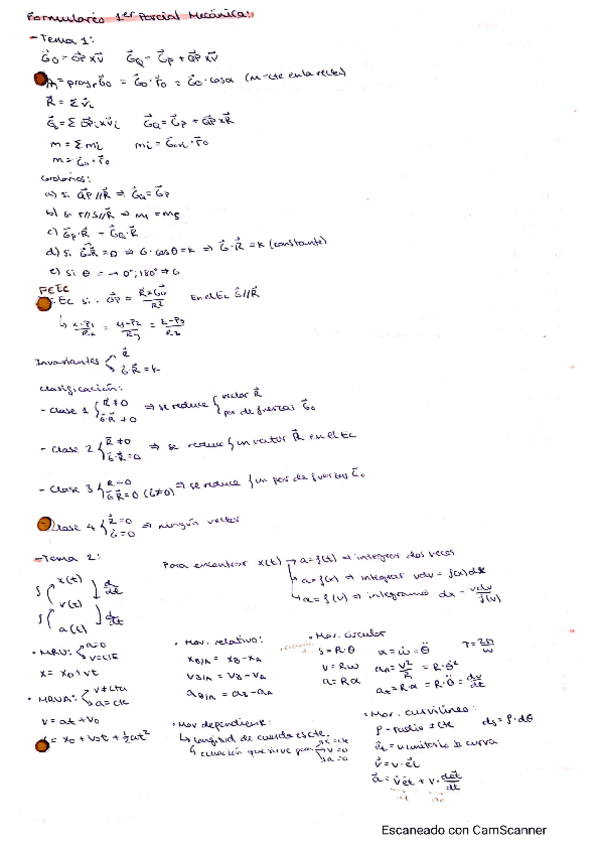 Formulario 1er Parcial Mecánica:
- Tema 1:
G⃗o = O⃗P x v⃗   G⃗Q = G⃗P + Q⃗P x v⃗
= proy r G⃗o = G⃗o · r⃗o = G⃗o · cosα (m=cte en la recta)
R⃗ = Σ v⃗i
G⃗ = Σ O⃗Pi x v⃗i   G⃗Q = G⃗P + Q⃗P x R⃗
m = Σ mi   mi = · r⃗o
m = G⃗o · r⃗o
Corolarios:
a) si Q⃗P // R⃗ ⇒ G⃗Q = G⃗P
b) si r // s // R⃗ ⇒ mr = ms
c) G⃗P · R⃗ = G⃗Q · R⃗
d) si ⇒ G · cosθ = k ⇒ G⃗ · R⃗ = k (constante)
e) si θ = 0°, 180° ⇒ G
EC si O⃗P = R⃗ x G⃗o / R² En el EC G⃗ // R⃗
↳ x-P1/Rx = y-P2/Ry = z-P3/Rz
Invariantes R⃗
G⃗ · R⃗ = k
Clasificación:
- Clase 1 { R⃗ ≠ 0 G⃗·R⃗ ≠ 0 ⇒ se reduce { vector R⃗ par de fuerzas G⃗o
- Clase 2 { R⃗ ≠ 0 G⃗·R⃗ = 0 ⇒ se reduce { un vector R⃗ en el EC
- Clase 3 { R = 0 G⃗·R⃗ = 0 (G≠0) ⇒ se reduce { un par de fuerzas G⃗o
Clase 4 { R⃗ = 0 G = 0 ⇒ ningún vector
- Tema 2:
Para encontrar x(t) → a = f(t) ⇒ integrar dos veces
→ a = f(x) ⇒ integrar vdv = f(x)dx
→ a = f(v) ⇒ integramos dx = vdv/f(v)
∫ x(t) d/dt
v(t)
∫ a(t) d/dt
• MRU: a=0 v=CTE
x = x0 + vt
• MRUA: v≠cte a=cte
v = at + v0
x = x0 + v0t + ½at²
• Mov. relativo:
xB/A = xB - xA
vB/A = vB - vA
aB/A = aB - aA
• Mov dependiente:
↳ Longitud de cuerda es cte.
↳ ecuación que sirve para
• Mov. circular
s = R·θ   α = ω̇ = θ̈   T = 2π/ω
v = Rω   an = v²/R = R·θ̇²
a = Rα   at = R·α = R·θ̈ = dv/dt
• Mov. curvilíneo:
ρ = radio ≠ cte   ds = ρ·dθ
e⃗t = unitario curva
v⃗ = v · e⃗t
a⃗ = v̇ e⃗t + v · de⃗t/dt
Escaneado con CamScanner